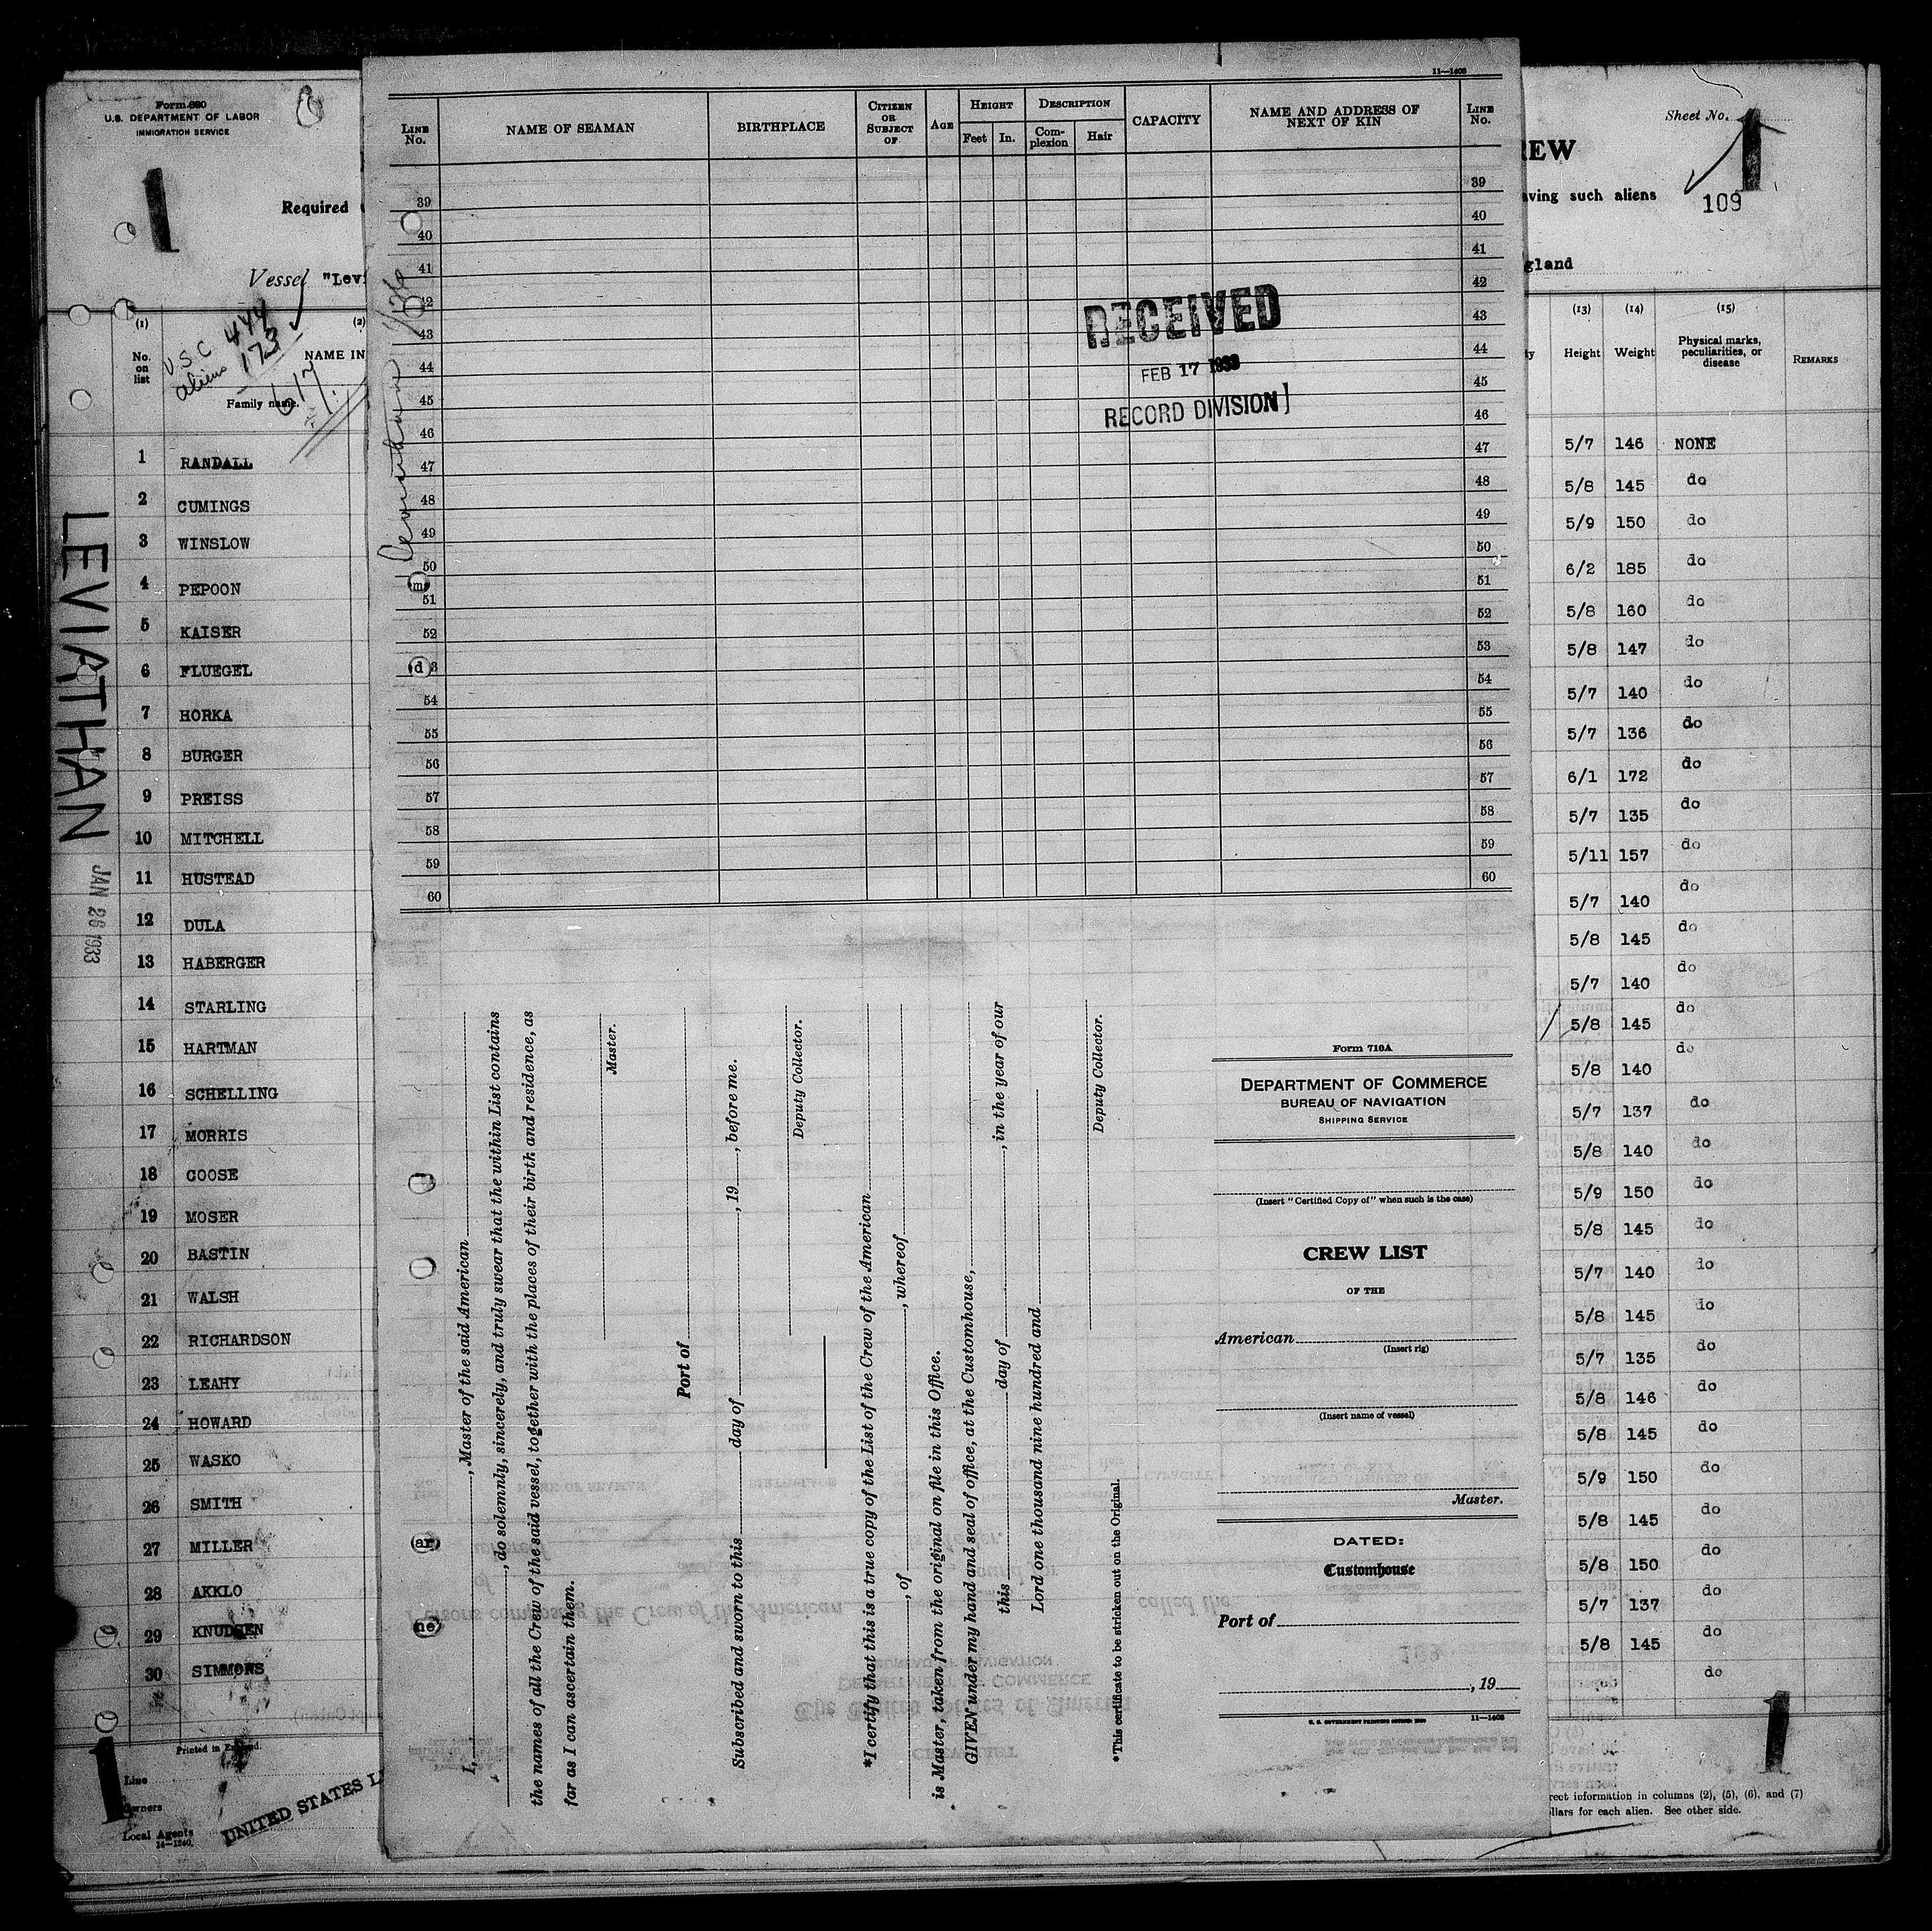 Form 680
U.S. DEPARTMENT OF LABOR
IMMIGRATION SERVICE
Required
Vessel "Levi
U.S.C 444
aliens 173
617
(1)
(2)
No. on list
NAME IN
Family name.
1 RANDALL
2 CUMINGS
3 WINSLOW
4 PEPOON
5 KAISER
6 FLUEGEL
7 HORKA
8 BURGER
9 PREISS
10 MITCHELL
11 HUSTEAD
12 DULA
13 HABERGER
14 STARLING
15 HARTMAN
16 SCHELLING
17 MORRIS
18 GOOSE
19 MOSER
20 BASTIN
21 WALSH
22 RICHARDSON
23 LEAHY
24 HOWARD
25 WASKO
26 SMITH
27 MILLER
28 AKKLO
29 KNUDSEN
30 SIMMONS
LEVIATHAN
JAN 26 1933
1
Printed in England.
Line
Owners
Local Agents
14—1240
UNITED STATES L
1
11—1408
LINE No.
NAME OF SEAMAN
BIRTHPLACE
CITIZEN OR SUBJECT OF
AGE
HEIGHT
Feet
In.
DESCRIPTION
Complexion
Hair
CAPACITY
NAME AND ADDRESS OF NEXT OF KIN
LINE No.
39 39
40 40
41 41
42 42
43 43
44 44
45 45
46 46
47 47
48 48
49 49
50 50
51 51
52 52
3 53
54 54
55 55
56 56
57 57
58 58
59 59
60 60
(m)
(d)
RECEIVED
FEB 17 1933
RECORD DIVISION
I, , Master of the said American
, do solemnly, sincerely, and truly swear that the within List contains
the names of all the Crew of the said vessel, together with the places of their birth and residence, as
far as I can ascertain them.
Master.
Port of
Subscribed and sworn to this day of , 19 , before me.
Deputy Collector.
*I certify that this is a true copy of the List of the Crew of the American
, of , whereof
is Master, taken from the original on file in this Office.
GIVEN under my hand and seal of office, at the Customhouse,
this day of , in the year of our
Lord one thousand nine hundred and
Deputy Collector.
*This certificate to be stricken out on the Original.
(ar)
(ne)
Form 710A
DEPARTMENT OF COMMERCE
BUREAU OF NAVIGATION
SHIPPING SERVICE
(Insert "Certified Copy of" when such is the case)
CREW LIST
OF THE
American
(Insert rig)
(Insert name of vessel)
Master.
DATED:
Customhouse
Port of
, 19
11—1408
Sheet No.
1
REW
aving such aliens
109
gland
(13) (14) (15)
ty Height Weight Physical marks, peculiarities, or disease REMARKS
5/7 146 NONE
5/8 145 do
5/9 150 do
6/2 185 do
5/8 160 do
5/8 147 do
5/7 140 do
5/7 136 do
6/1 172 do
5/7 135 do
5/11 157 do
5/7 140 do
5/8 145 do
5/7 140 do
5/8 145 do
5/8 140 do
5/7 137 do
5/8 140 do
5/9 150 do
5/8 145 do
5/7 140 do
5/8 145 do
5/7 135 do
5/8 146 do
5/8 145 do
5/9 150 do
5/8 145 do
5/8 150 do
5/7 137 do
5/8 145 do
do
1
rect information in columns (2), (5), (6), and (7)
llars for each alien. See other side.